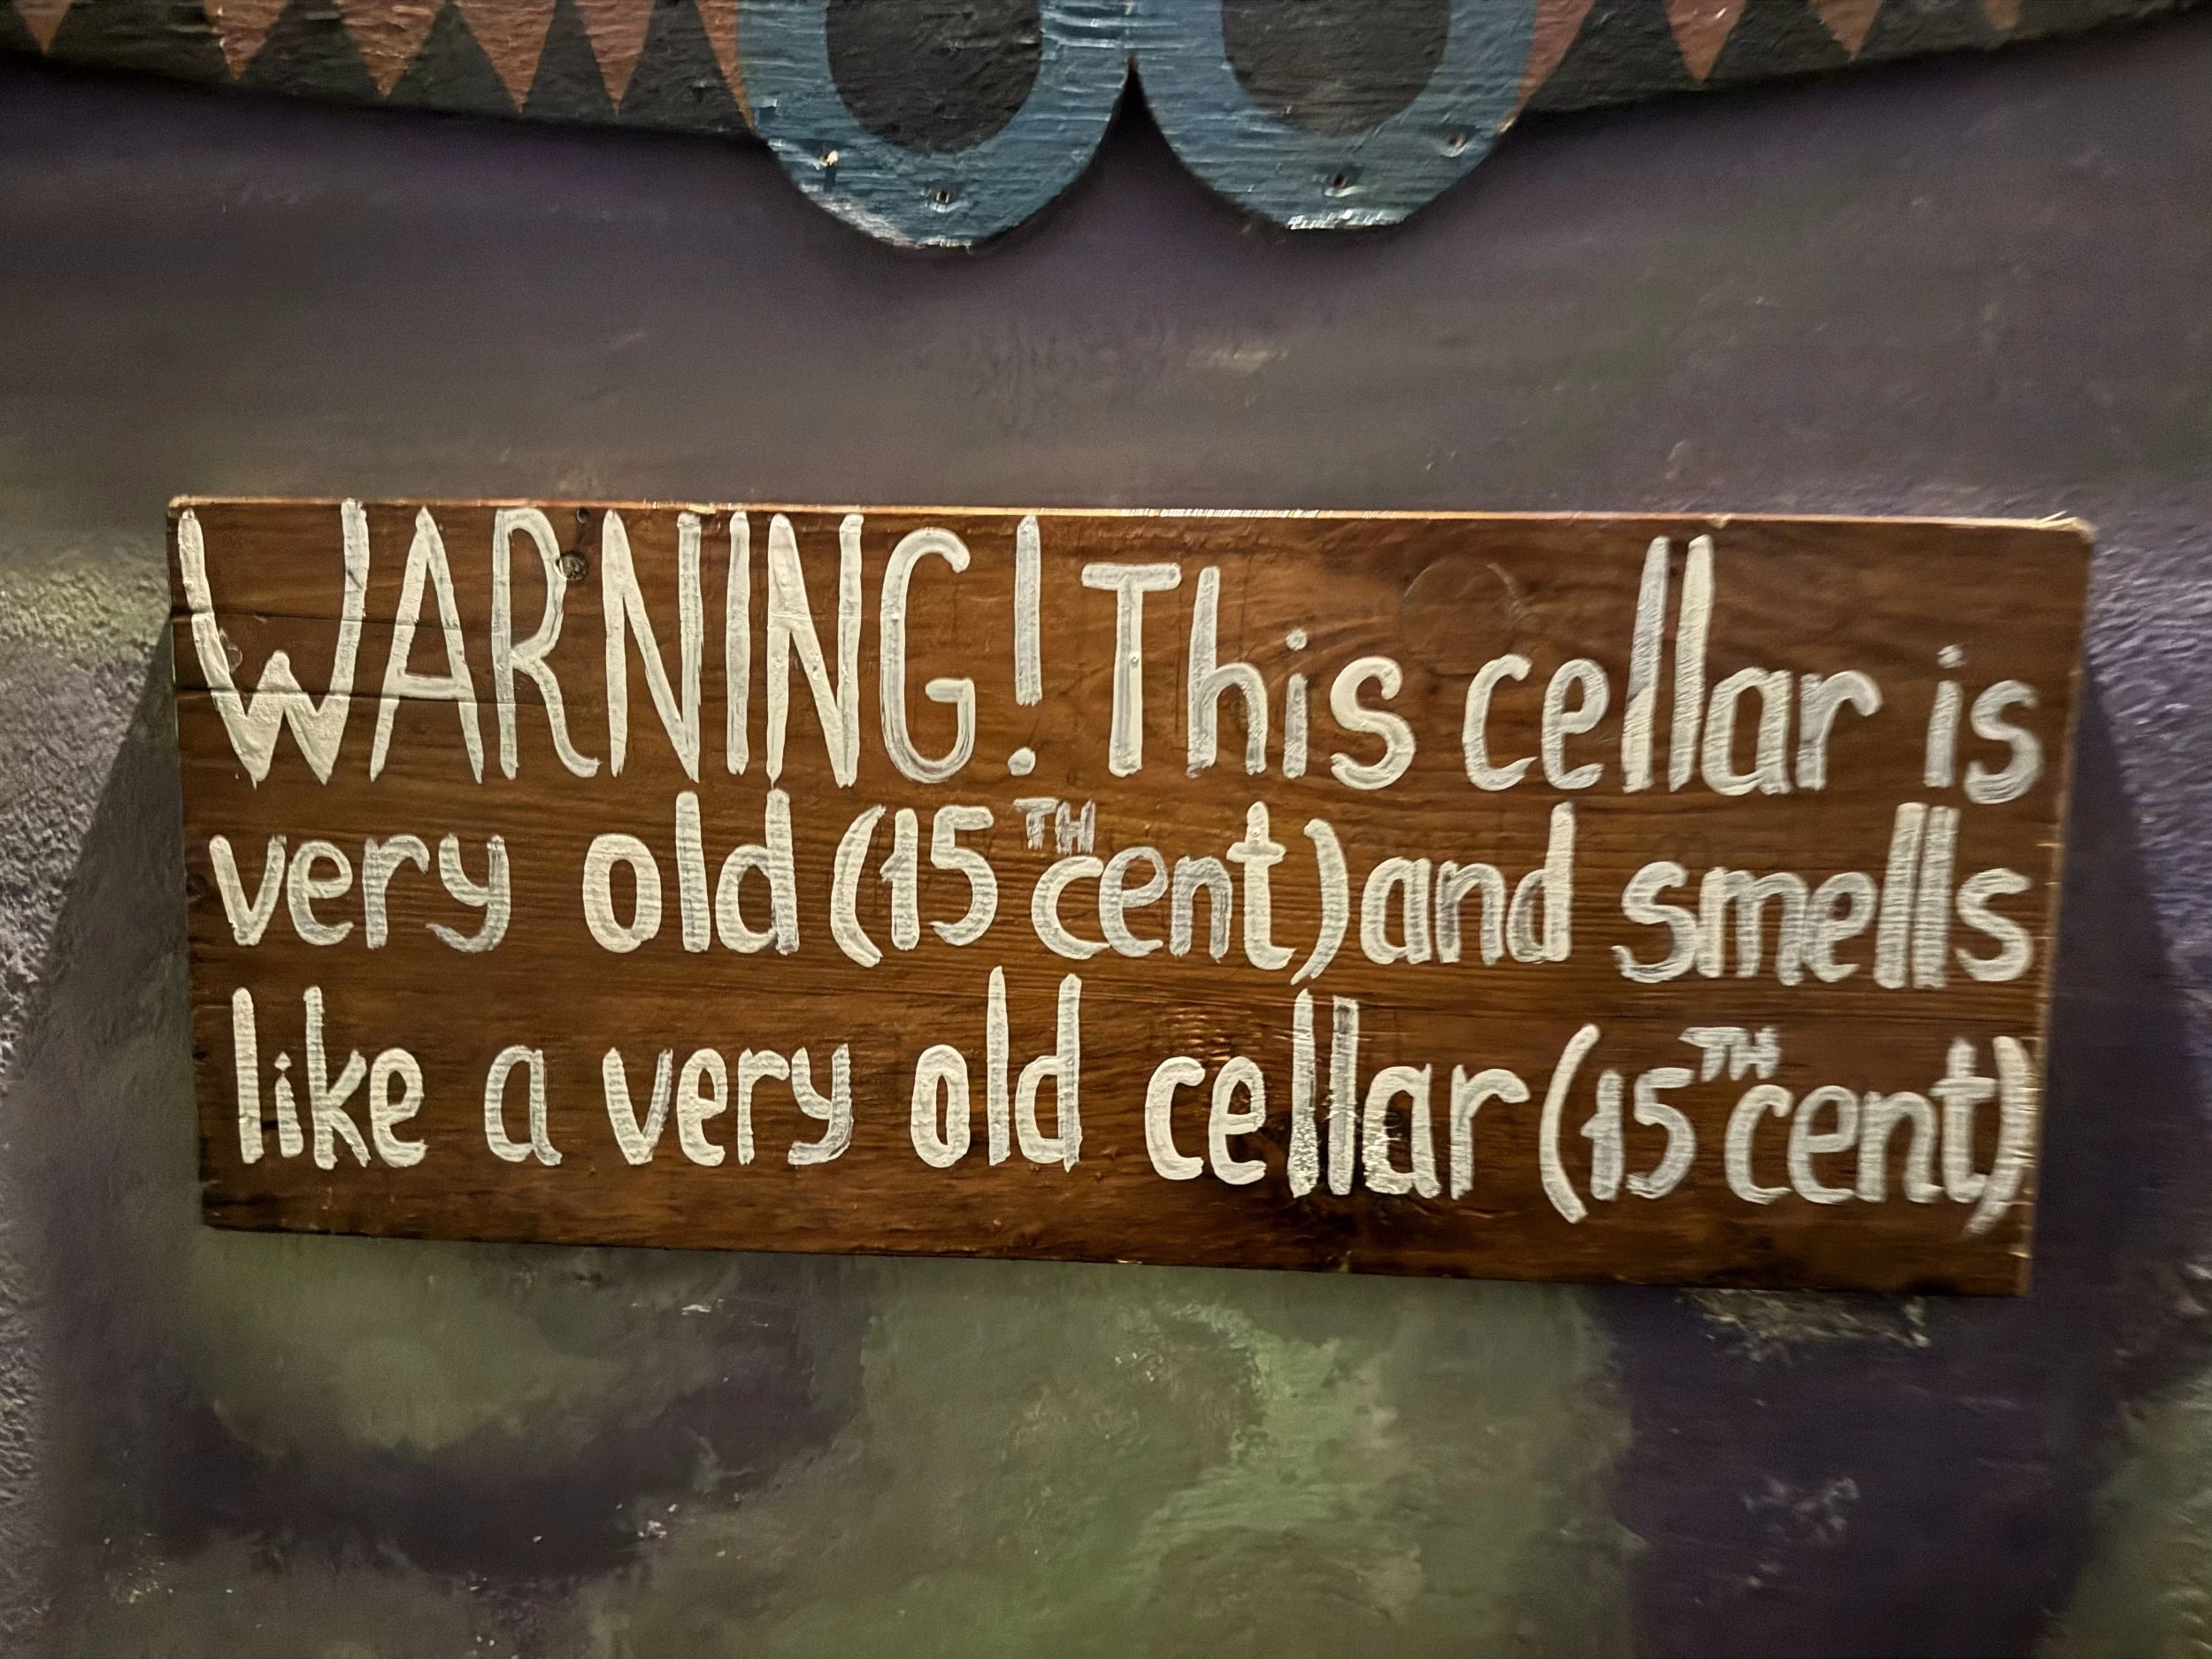 WARNING! This cellar is
very old (15TH cent) and smells
like a very old cellar (15TH cent)